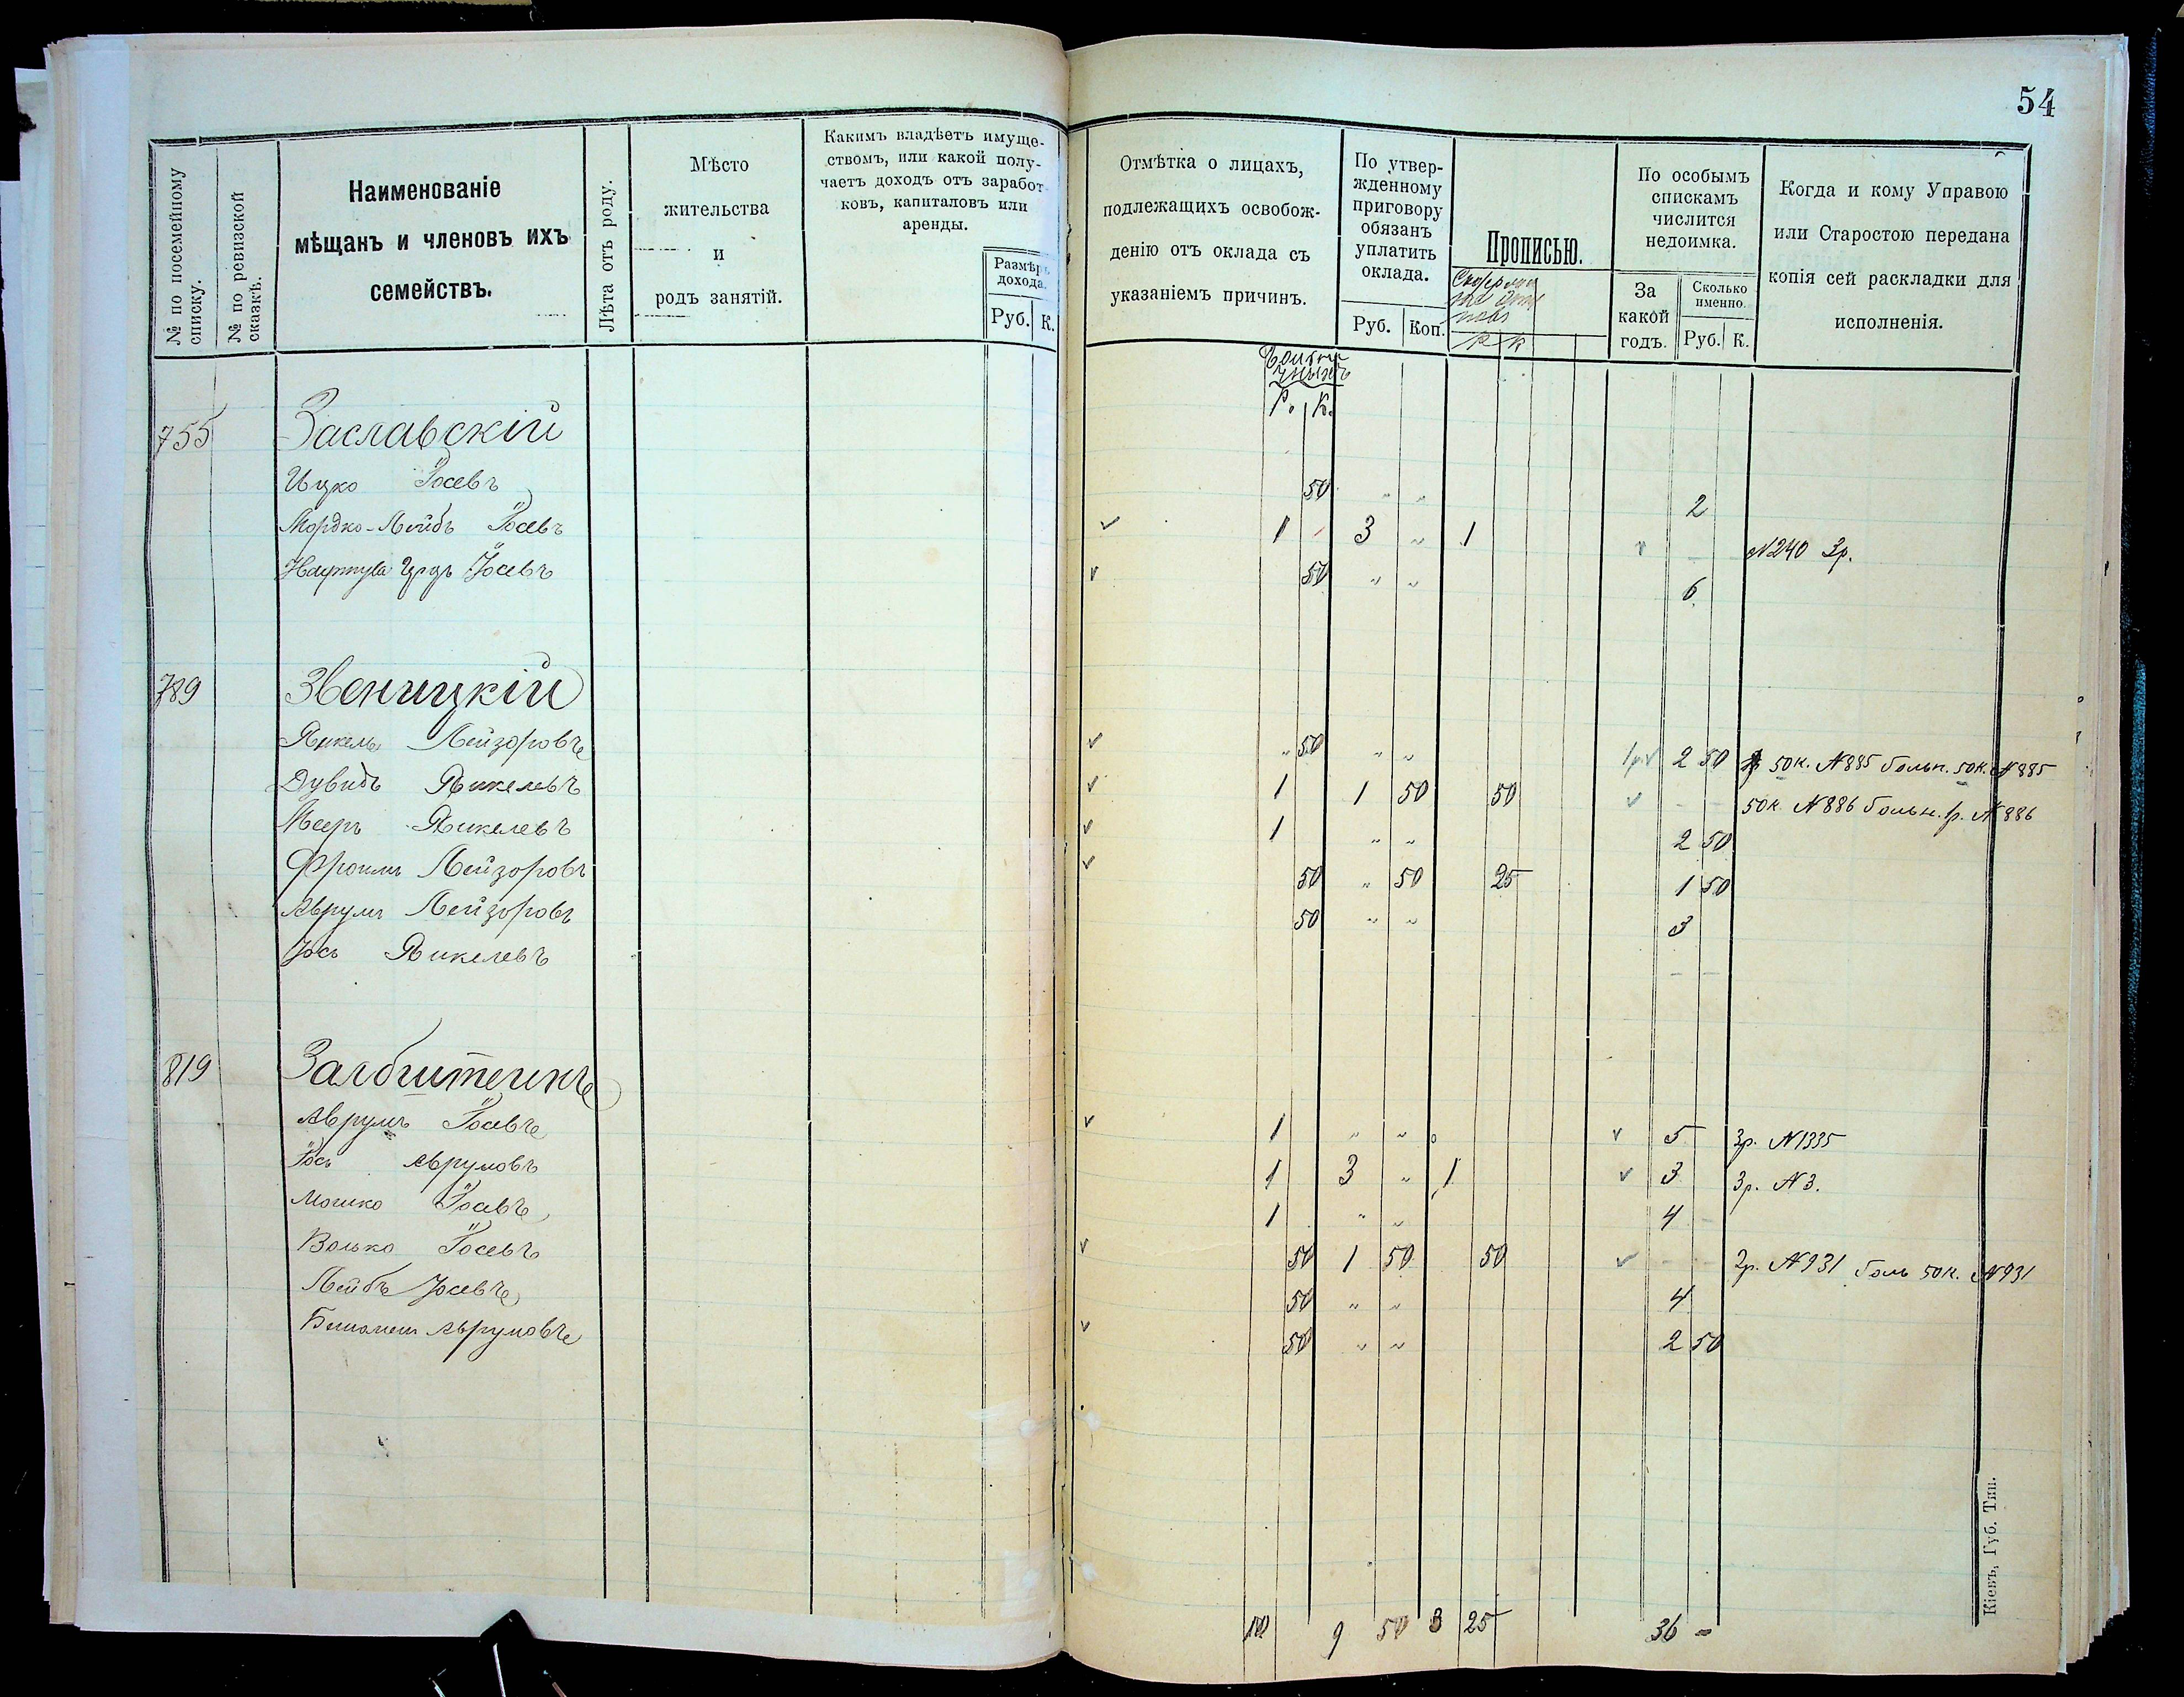 54
№ по посемейному списку.
№ по ревизской сказкѣ.
Наименованіе
мѣщанъ и членовъ ихъ
семействъ.
Лѣта отъ роду.
Мѣсто
жительства
и
родъ занятій.
Какимъ владѣетъ имуще-
ствомъ, или какой полу-
чаетъ доходъ отъ заработ-
ковъ, капиталовъ или
аренды.
Размѣръ
дохода.
Руб. К.
Отмѣтка о лицахъ,
подлежащихъ освобож-
денію отъ оклада съ
указаніемъ причинъ.
По утвер-
жденному
приговору
обязанъ
уплатить
оклада.
Руб. Коп.
Прописью.
Р К
По особымъ
спискамъ
числится
недоимка.
За
какой
годъ.
Сколько
именно.
Руб. К.
Когда и кому Управою
или Старостою передана
копія сей раскладки для
исполненія.
Р. К.
755 Заславскій
Ицко Іосевъ 50 " " 2
Мордко-Лейбъ Іосевъ 1 3 " 1 № 240 3р.
Іосевъ 50 " " 6
789 Звеницкій
Янкель Лейзоровъ " 50 " " 1р. 2 50 50к. № 885 больн. 50к. № 885
Дувидъ Янкелевъ 1 1 50 50 - - 50к № 886 больн. 1р. № 886
Мееръ Янкелевъ 1 " " 2 50
Фроимъ Лейзоровъ 50 " 50 25 1 50
Аврумъ Лейзоровъ 50 " " 3
Іось Янкелевъ - -
819
Аврумъ Іосевъ 1 " " 5 3р. № 1335
Іось Аврумовъ 1 3 " 1 3 3р. № 3.
Мошко Іосевъ 1 " " 4 -
Волько Іосевъ 50 1 50 50 - - 2р. № 931 боль 50к. № 931
Лейбъ Іосевъ 50 " " 4
Аврумовъ 50 " " 2 50
10 9 50 3 25 36 -
Кіевъ, Губ. Тип.